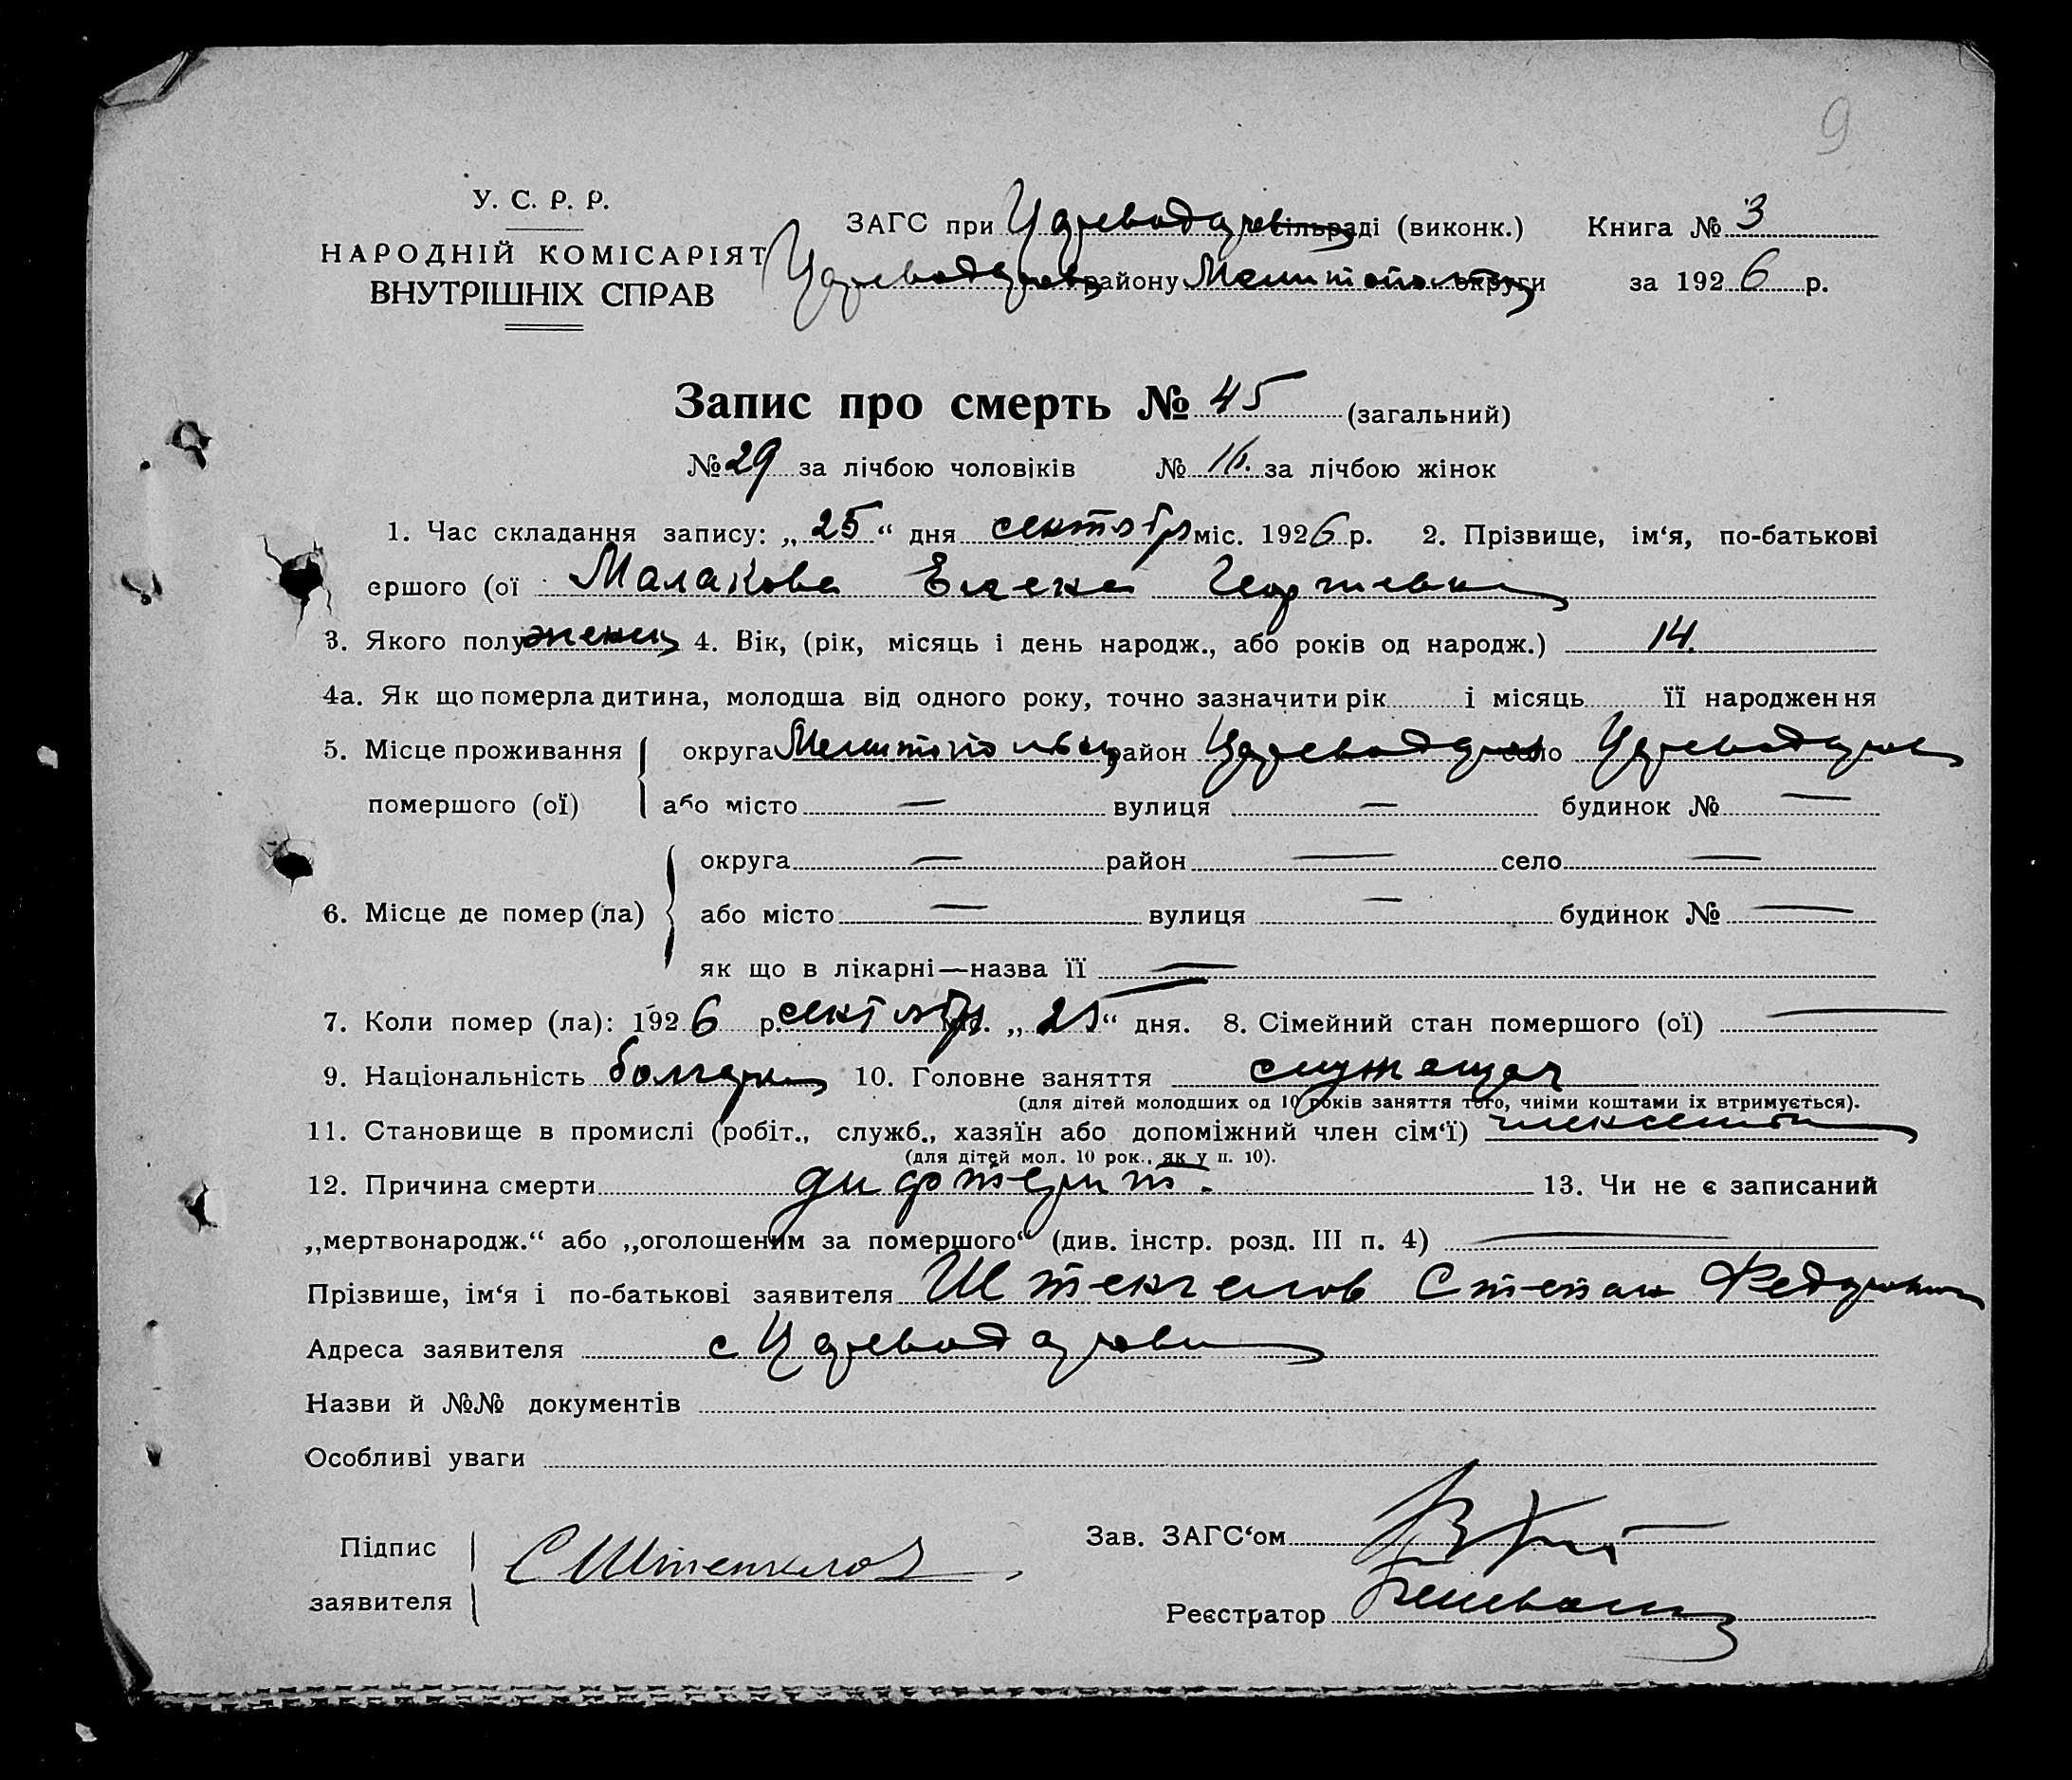 9
У. С. Р. Р.
НАРОДНІЙ КОМІСАРІЯТ
ВНУТРІШНІХ СПРАВ
ЗАГС при сільраді (виконк.) Книга № 3
району округи за 1926 р.
Запис про смерть № 45 (загальний)
№ 29 за лічбою чоловіків № 16. за лічбою жінок
1. Час складання запису: „25“ дня сентябр міс. 1926 р. 2. Прізвище, ім‘я, по-батькові
ершого (ої Малакова Елена Георгиевна
3. Якого полу женщ 4. Вік, (рік, місяць і день народж., або років од народж.) 14.
4а. Як що померла дитина, молодша від одного року, точно зазначити рік і місяць її народження
5. Місце проживання округа район село
помершого (ої) або місто — вулиця — будинок № —
округа — район — село —
6. Місце де помер (ла) або місто — вулиця — будинок № —
як що в лікарні—назва її —
7. Коли помер (ла): 1926 р. сентябр міс. „25“ дня. 8. Сімейний стан помершого (ої) —
9. Національність болгарка 10. Головне заняття служащая
(для дітей молодших од 10 років заняття того, чиїми коштами їх втримується).
11. Становище в промислі (робіт., служб., хазяїн або допоміжний член сім‘ї) член семьи
(для дітей мол. 10 рок., як у п. 10).
12. Причина смерти дифтерит. 13. Чи не є записаний
„мертвонародж.“ або „оголошеним за помершого“ (див. інстр. розд. III п. 4) —
Прізвище, ім‘я і по-батькові заявителя Степан Федорович
Адреса заявителя с
Назви й №№ документів
Особливі уваги
Підпис
заявителя
Зав. ЗАГС‘ом
Реєстратор